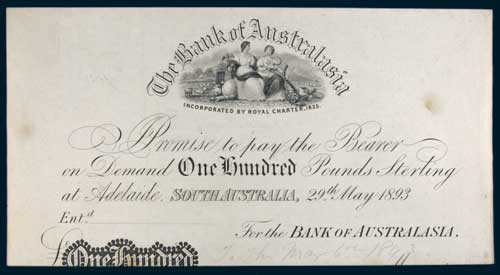 The Bank of Australasia
INCORPORATED BY ROYAL CHARTER, 1835.
Promise to pay the Bearer
on Demand One Hundred Pounds Sterling
at Adelaide. SOUTH AUSTRALIA, 29th May 1893
Ent.d
For the BANK OF AUSTRALASIA.
£ One Hundred
May 6th 1893